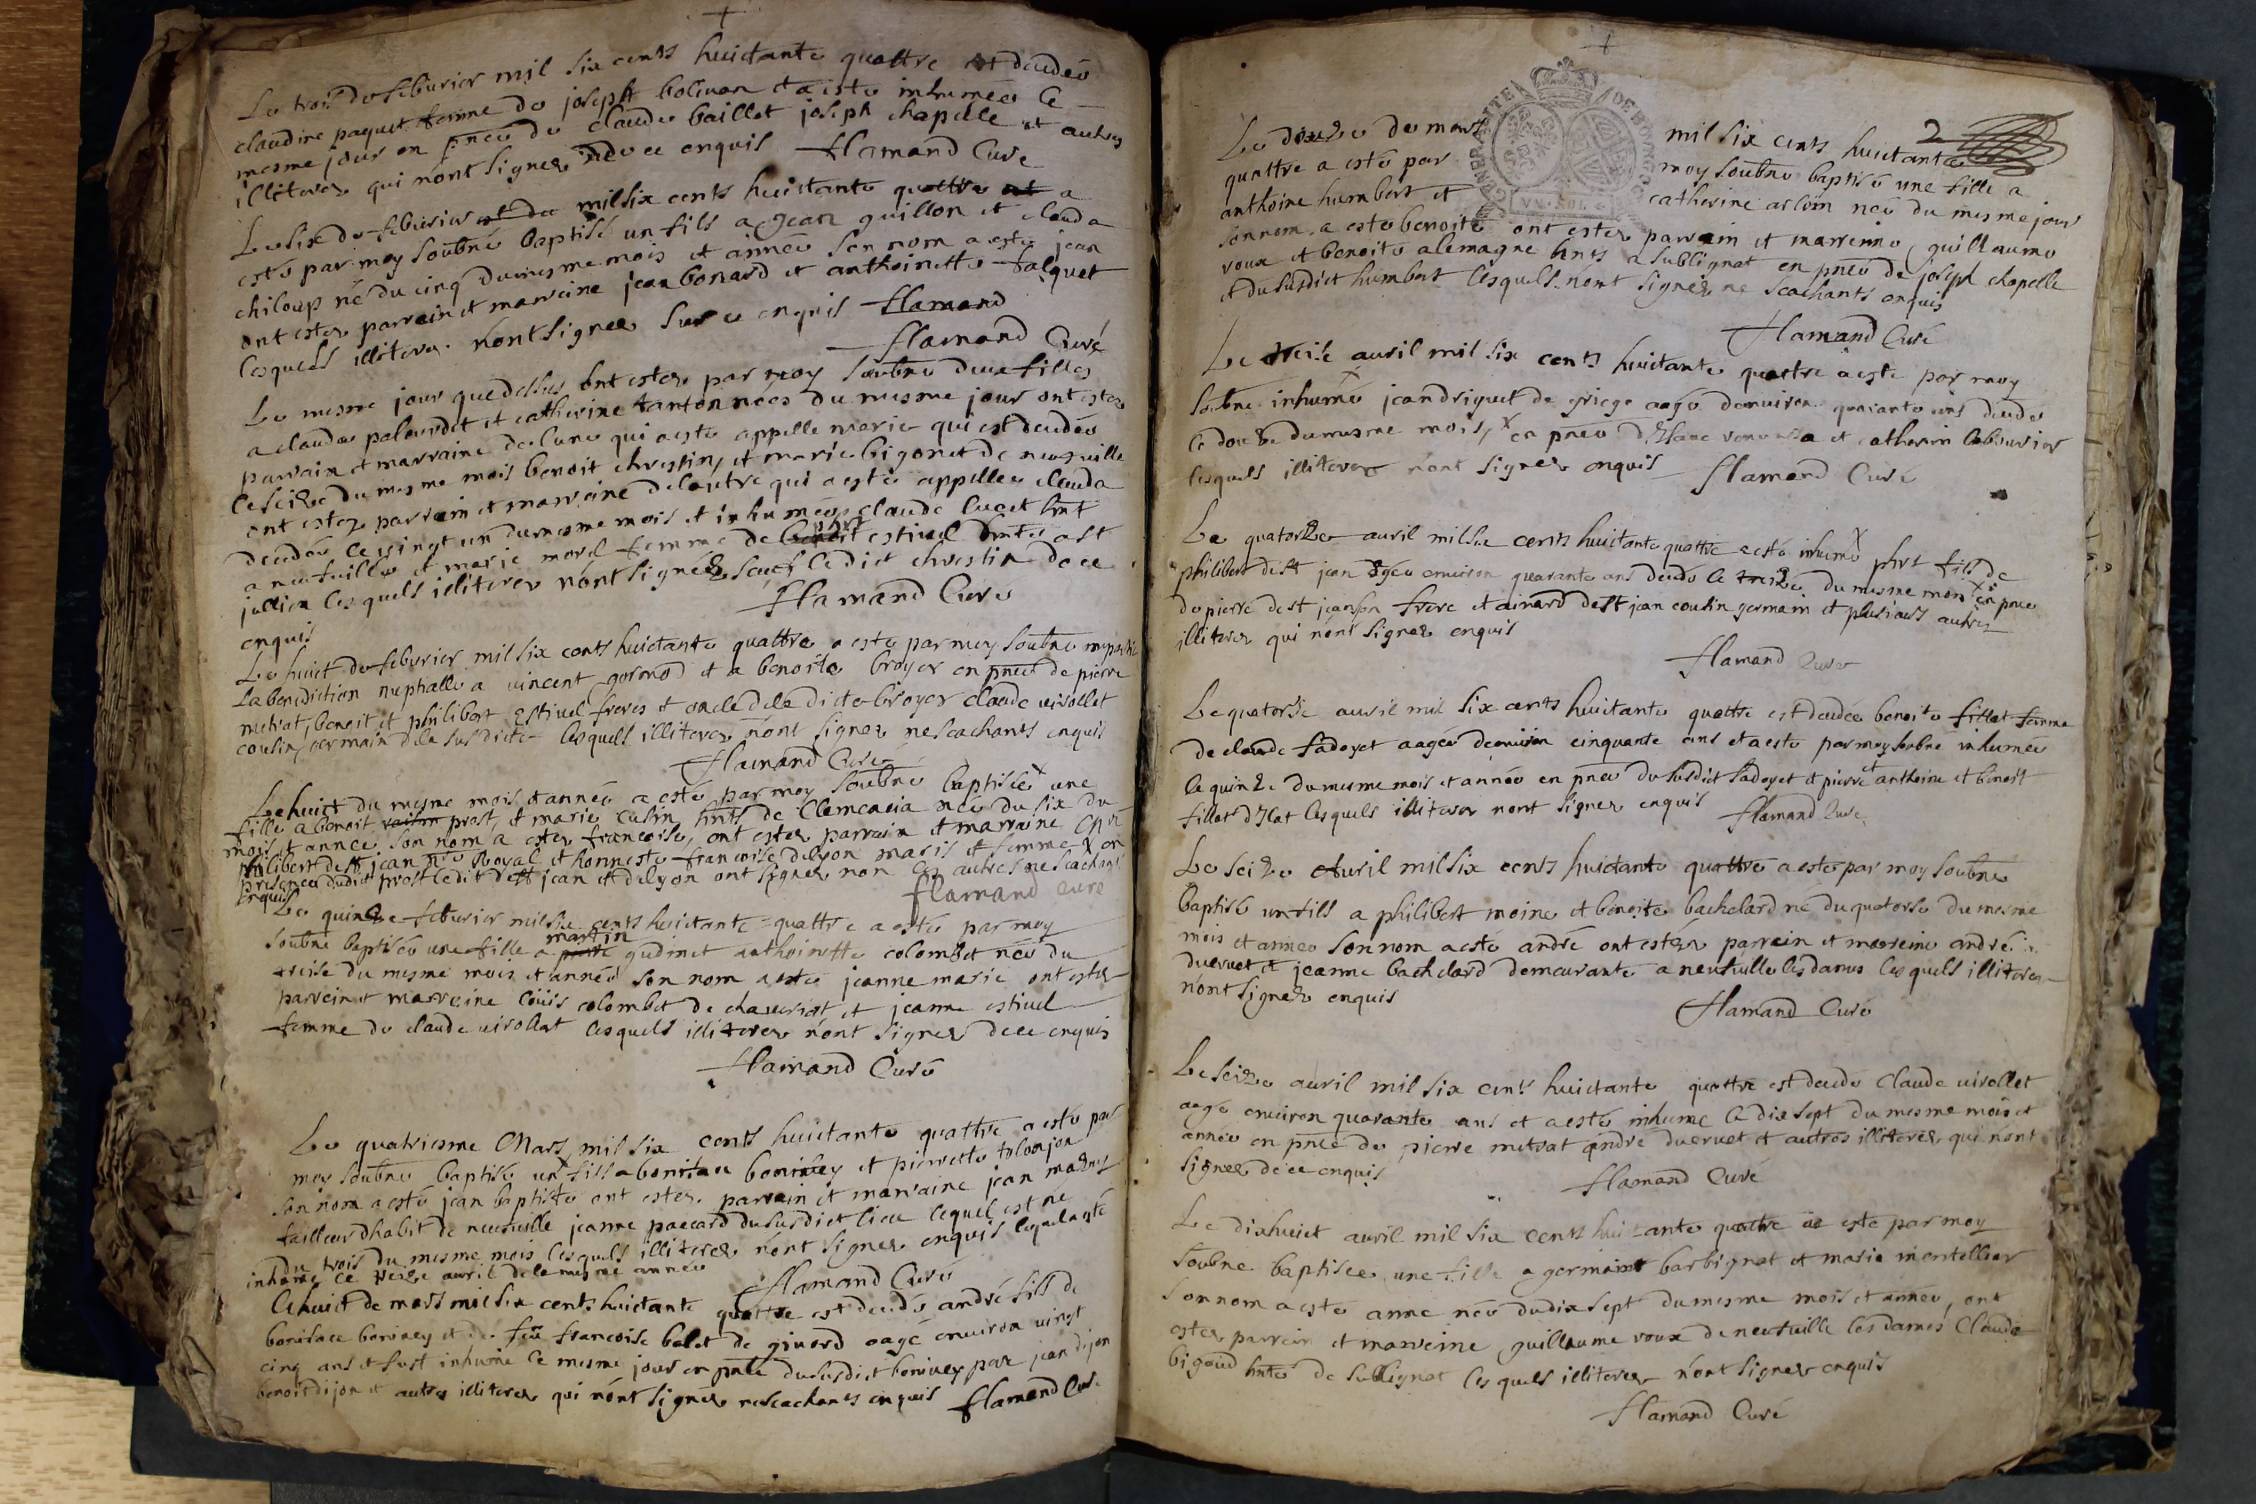 Le trois de feburier mil six cents huictante quattre est decedeé
claudine paquet femme de joseph et a este inhumeé le
mesme jour en pnce de claude baillet joseph chapelle et autres
illiterez qui nont signez de ce enquis flamand Cure
Le six de feburier mil six cents huictante quattre a
esté par moy soubné baptisé un fils a Jean guillon et clauda
chiloup né du cinq du mesme mois et année son nom a este jean
ont estez parrain et marreine jean bonard et anthoinette falquet
lesquels illiterez nont signez sur ce enquis flamand
flamand Curé
Le mesme jour que dessus ont estez par moy soubné deux filles
a claude palourdet et catherine tanton nées du mesme jour ont estez
parrain et marraine de lune qui a este appelle marie qui est decedée
le seize du mesme mois benoit chrestin, et marie bigonet de neufville
ont estez parrain et marreine de lautre qui a esté appellee clauda
decedée le vingt un du mesme mois et inhumées claude lucet hnt
a neufville et marie morel femme de estivel
jullien lesquels illiterez nont signéz sauf le dict chrestin de ce
enquis flamand Cure
Le huict de feburier mil six cents huictante quattre a este par moy soubné
la benediction nuptialle a vincent gormod et a benoite broyer en pnce de pierre
metrat, benoit et philibert estivel freres et oncle de la dicte broyer claude virollet
cousin germain de la susdicte lesquels illiterez nont signez ne scachants enquis
flamand Cure
Le huict du mesme mois et année a esté par moy soubné baptisée une
fille a benoit prost, et marie cusin hnts de Clemencia née du six du
mois et annee son nom a estez francoise, ont estez parrain et marraine
philibert de st jean royal et honneste francoise delyon maris et femme en
presence dudict prost ledit de st jean et delyon ont signez non les autres ne scachants
enquis flamand cure
Le quinze feburier mil six cents huictante quattre a esté par moy
martin
soubné baptisée une fille a gudinet anthoinette colombet née du
treise du mesme mois et année son nom a esté jeanne marie ont estez
parrein et marreine loüis colombet de chaveriat et jeanne estivel
femme de claude virollat lesquels illiterez nont signez de ce enquis
flamand Curé
Le quatriesme Mars mil six cents huictante quattre a esté par
moy soubné baptisé un fils a boniface bonivey et pierrette tolonjon
son nom a esté jean baptiste ont estez parrein et marraine jean
tailleur dhabit de neufville jeanne paccard du susdict lieu lequel est né
du trois du mesme mois lesquels illiterez nont signez enquis lequel a esté
inhumé le avril de la mesme année flamand Curé
le huict de mars mil six cents huictante quattre est decedé andré fils de
boniface bonivey et de feu francoise balet de givord agé environ vingt
cinq ans et fust inhumé le mesme jour en pnce du susdict bonivey par jean dijon
benoit dijon et autres illiterez qui nont signéz ne scachants enquis flamand Cure
2
GENERALITE DE BOURGOGNE
Le douze de mars mil six cents huictante
quattre a esté par moy soubné baptisé une fille a
anthoine humbert et catherine née du mesme jour
son nom a este benoite ont estez parrain et marrenne, guillaume
roux et benoite alemagne hnts a sublignat en pnce de joseph chapelle
et du susdict humbert lesquels nont signéz ne scachants enquis
flamand Curé
Le treise auril mil six cents huictante quattre a este par moy
soubné inhumé jean driquet de griege aagé denviron quarante ans decedé
le douze du mesme mois, en pnce et catherin lebeurier
lesquels illiterez nont signez enquis flamand Curé
Le quatorze auril mil six cents huictante quattre a esté inhumé fils de
philibert de st jean agée environ quarante ans decedé le treize du mesme mois en pnce
de pierre de st jean son frere et ainard de st jean cousin germain et plusieurs autres
illiterez qui nont signez enquis
flamand Cure
Le quatorse auril mil six cents huictante quattre est decedée benoite fillat femme
de claude sadoyet aagée denviron cinquante ans et a esté par moy soubné inhumée
le quinze du mesme mois et année en pnce du susdict sadoyet et pierre et anthoine et benoit
fillat lesquels illiterez nont signez enquis flamand Cure
Le seize auril mil six cents huictante quattre a esté par moy soubné
baptisé un fils a philibert moine et benoite bachelard né du quatorse du mesme
mois et année son nom a esté andré ont estéz parrain et marreine andré
ducruet et jeanne bachelard demeurante a neufville les dames lesquels illiterez
nont signez enquis
flamand Curé
Le seize auril mil six cents huictante quattre est decedé claude virollet
aagé environ quarante ans et a esté inhumé le dix sept du mesme mois et
année en pnce de pierre metrat andré ducruet et autres illiterez qui nont
signez de ce enquis
flamand Curé
Le dixhuict auril mil six cents huictante quattre a este par moy
soubne baptisee une fille a germaint barbignat et marie montellier
son nom a esté anne née du dix sept du mesme mois et année, ont
estez parrein et marreine guillaume roux de neufville les dames Claude
bigoud hnte de sublignat lesquels illiterez nont signez enquis
flamand Curé